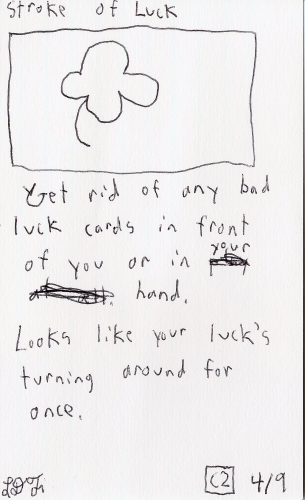 Stroke of Luck
Get rid of any bad
luck cards in front
of you or in your
hand.
Looks like your luck's
turning around for
once.
C2 4/9